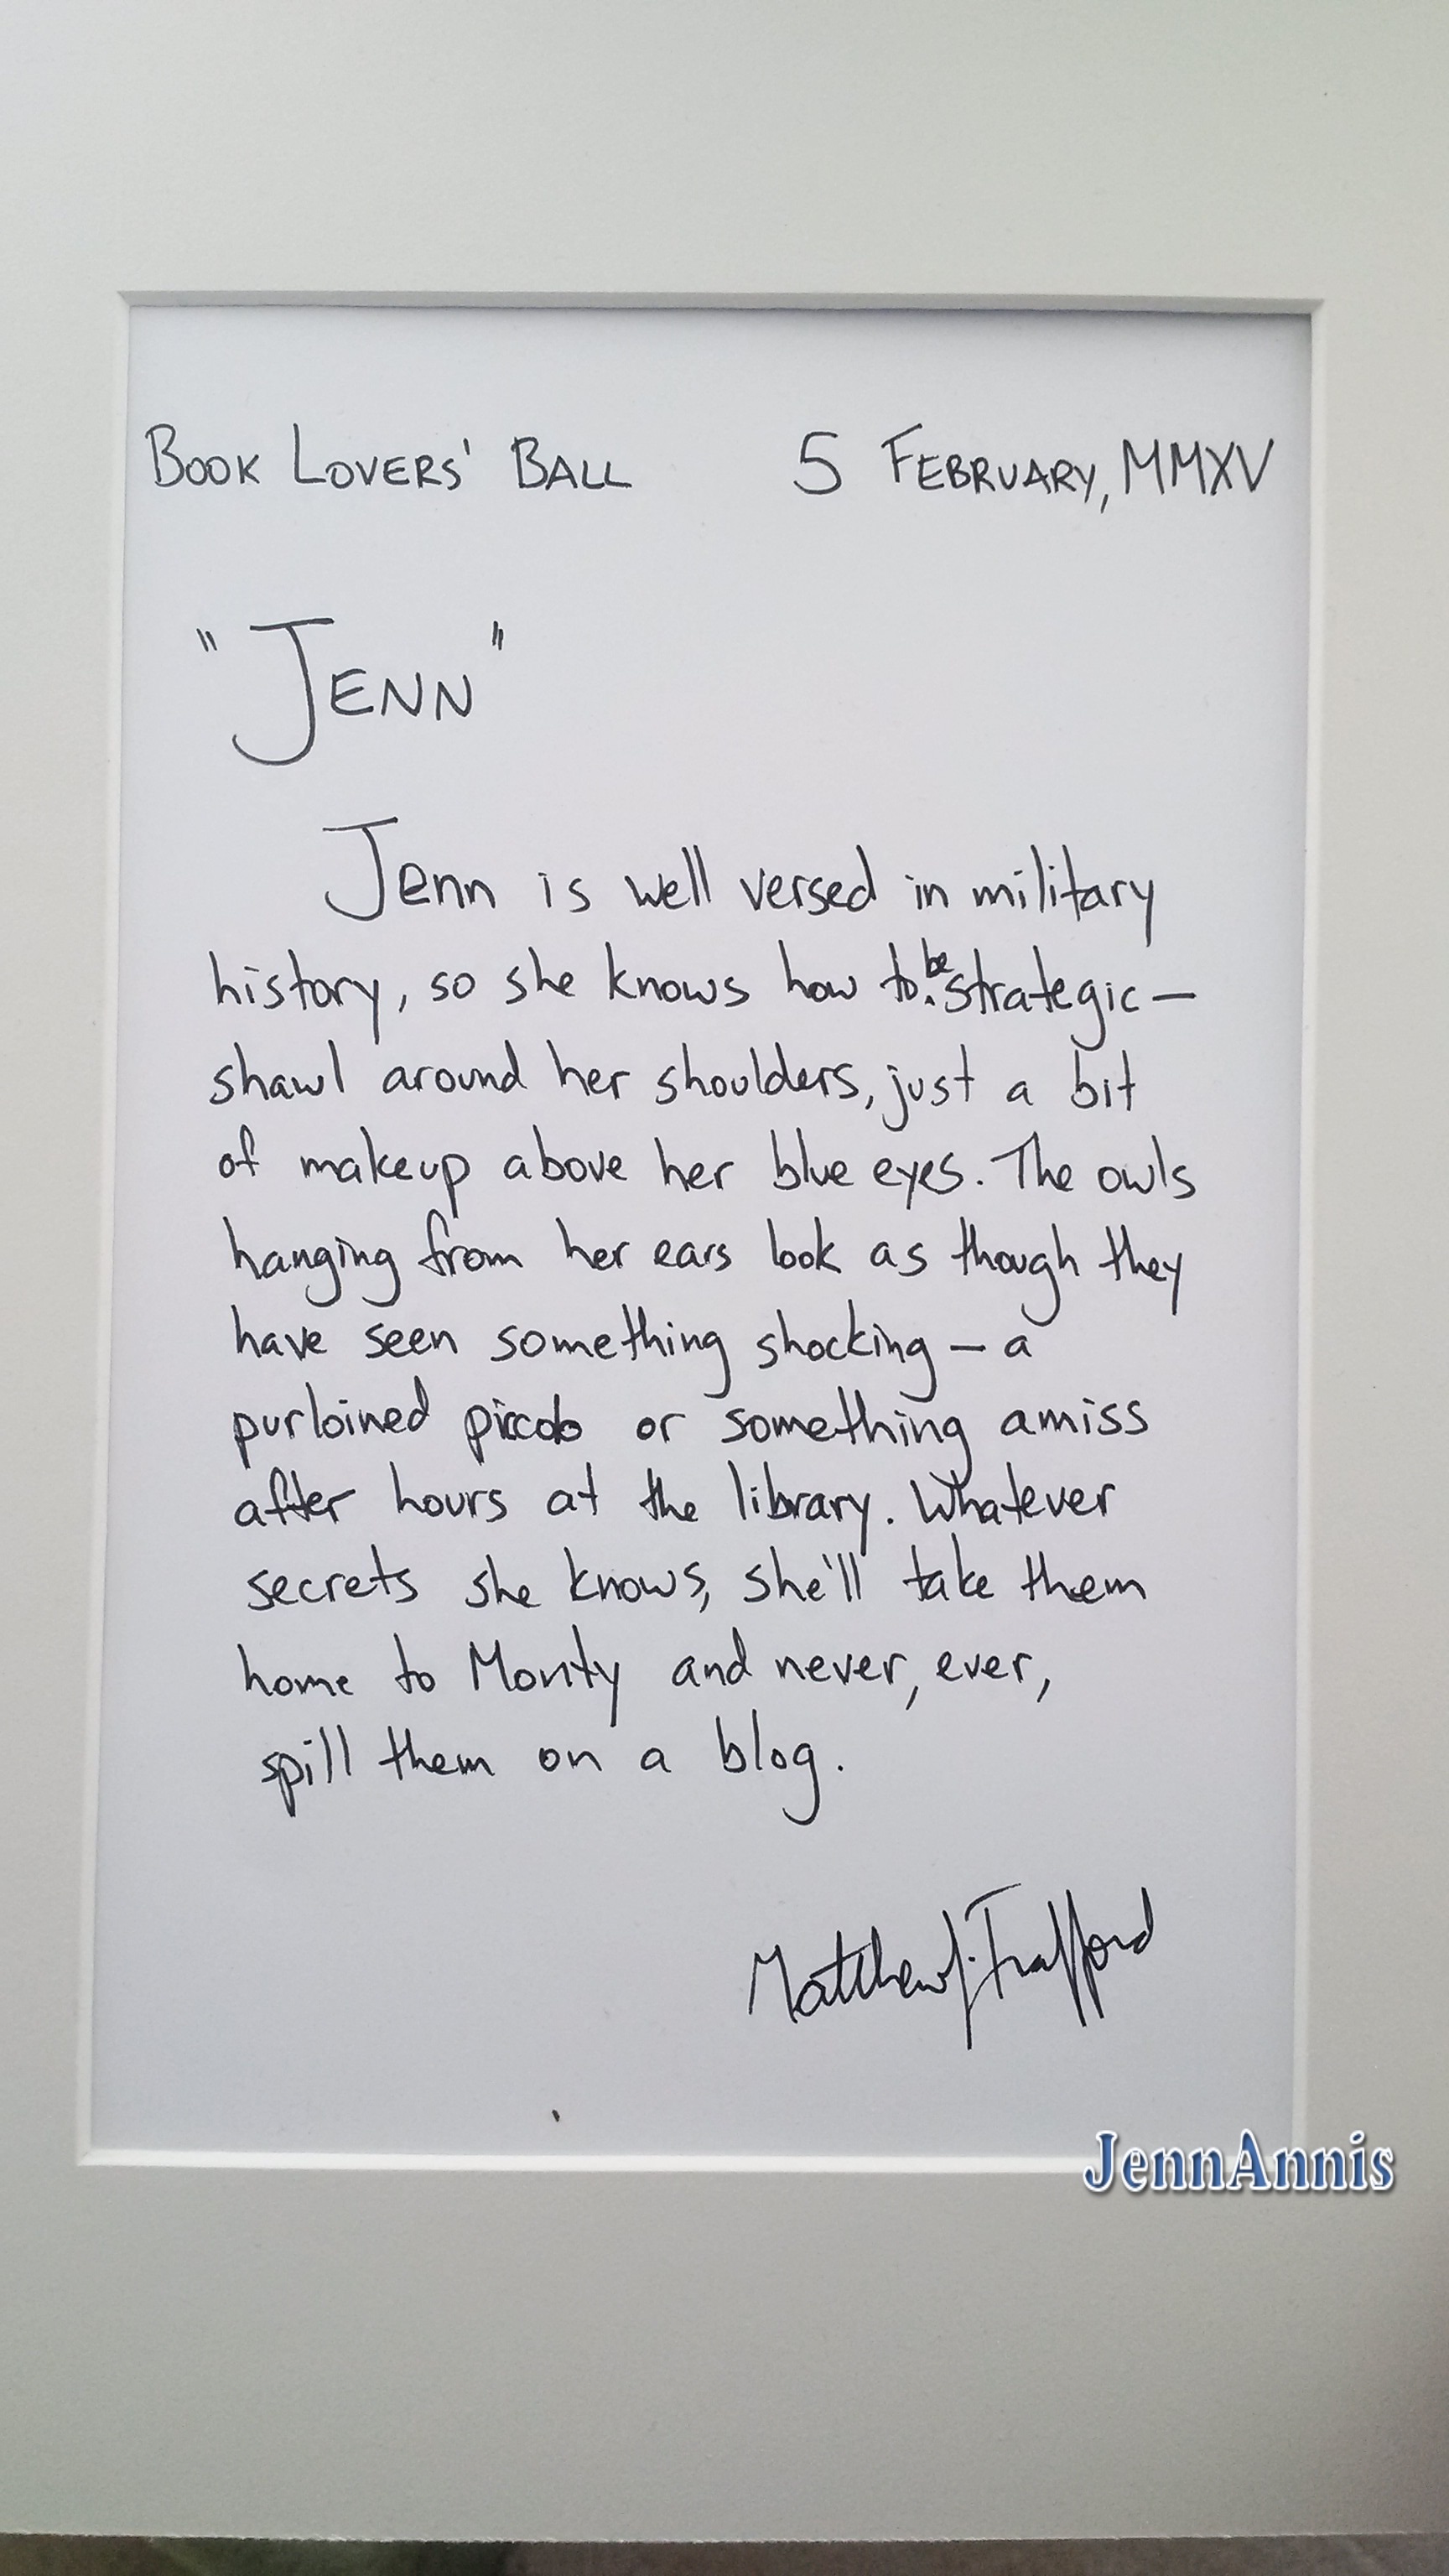 BOOK LOVERS' BALL 5 FEBRUARY, MMXV
"JENN"
Jenn is well versed in military
history, so she knows how to be strategic—
shawl around her shoulders, just a bit
of makeup above her blue eyes. The owls
hanging from her ears look as though they
have seen something shocking — a
purloined piccolo or something amiss
after hours at the library. Whatever
secrets she knows, she'll take them
home to Monty and never, ever,
spill them on a blog.
Matthew J. Trafford
JennAnnis